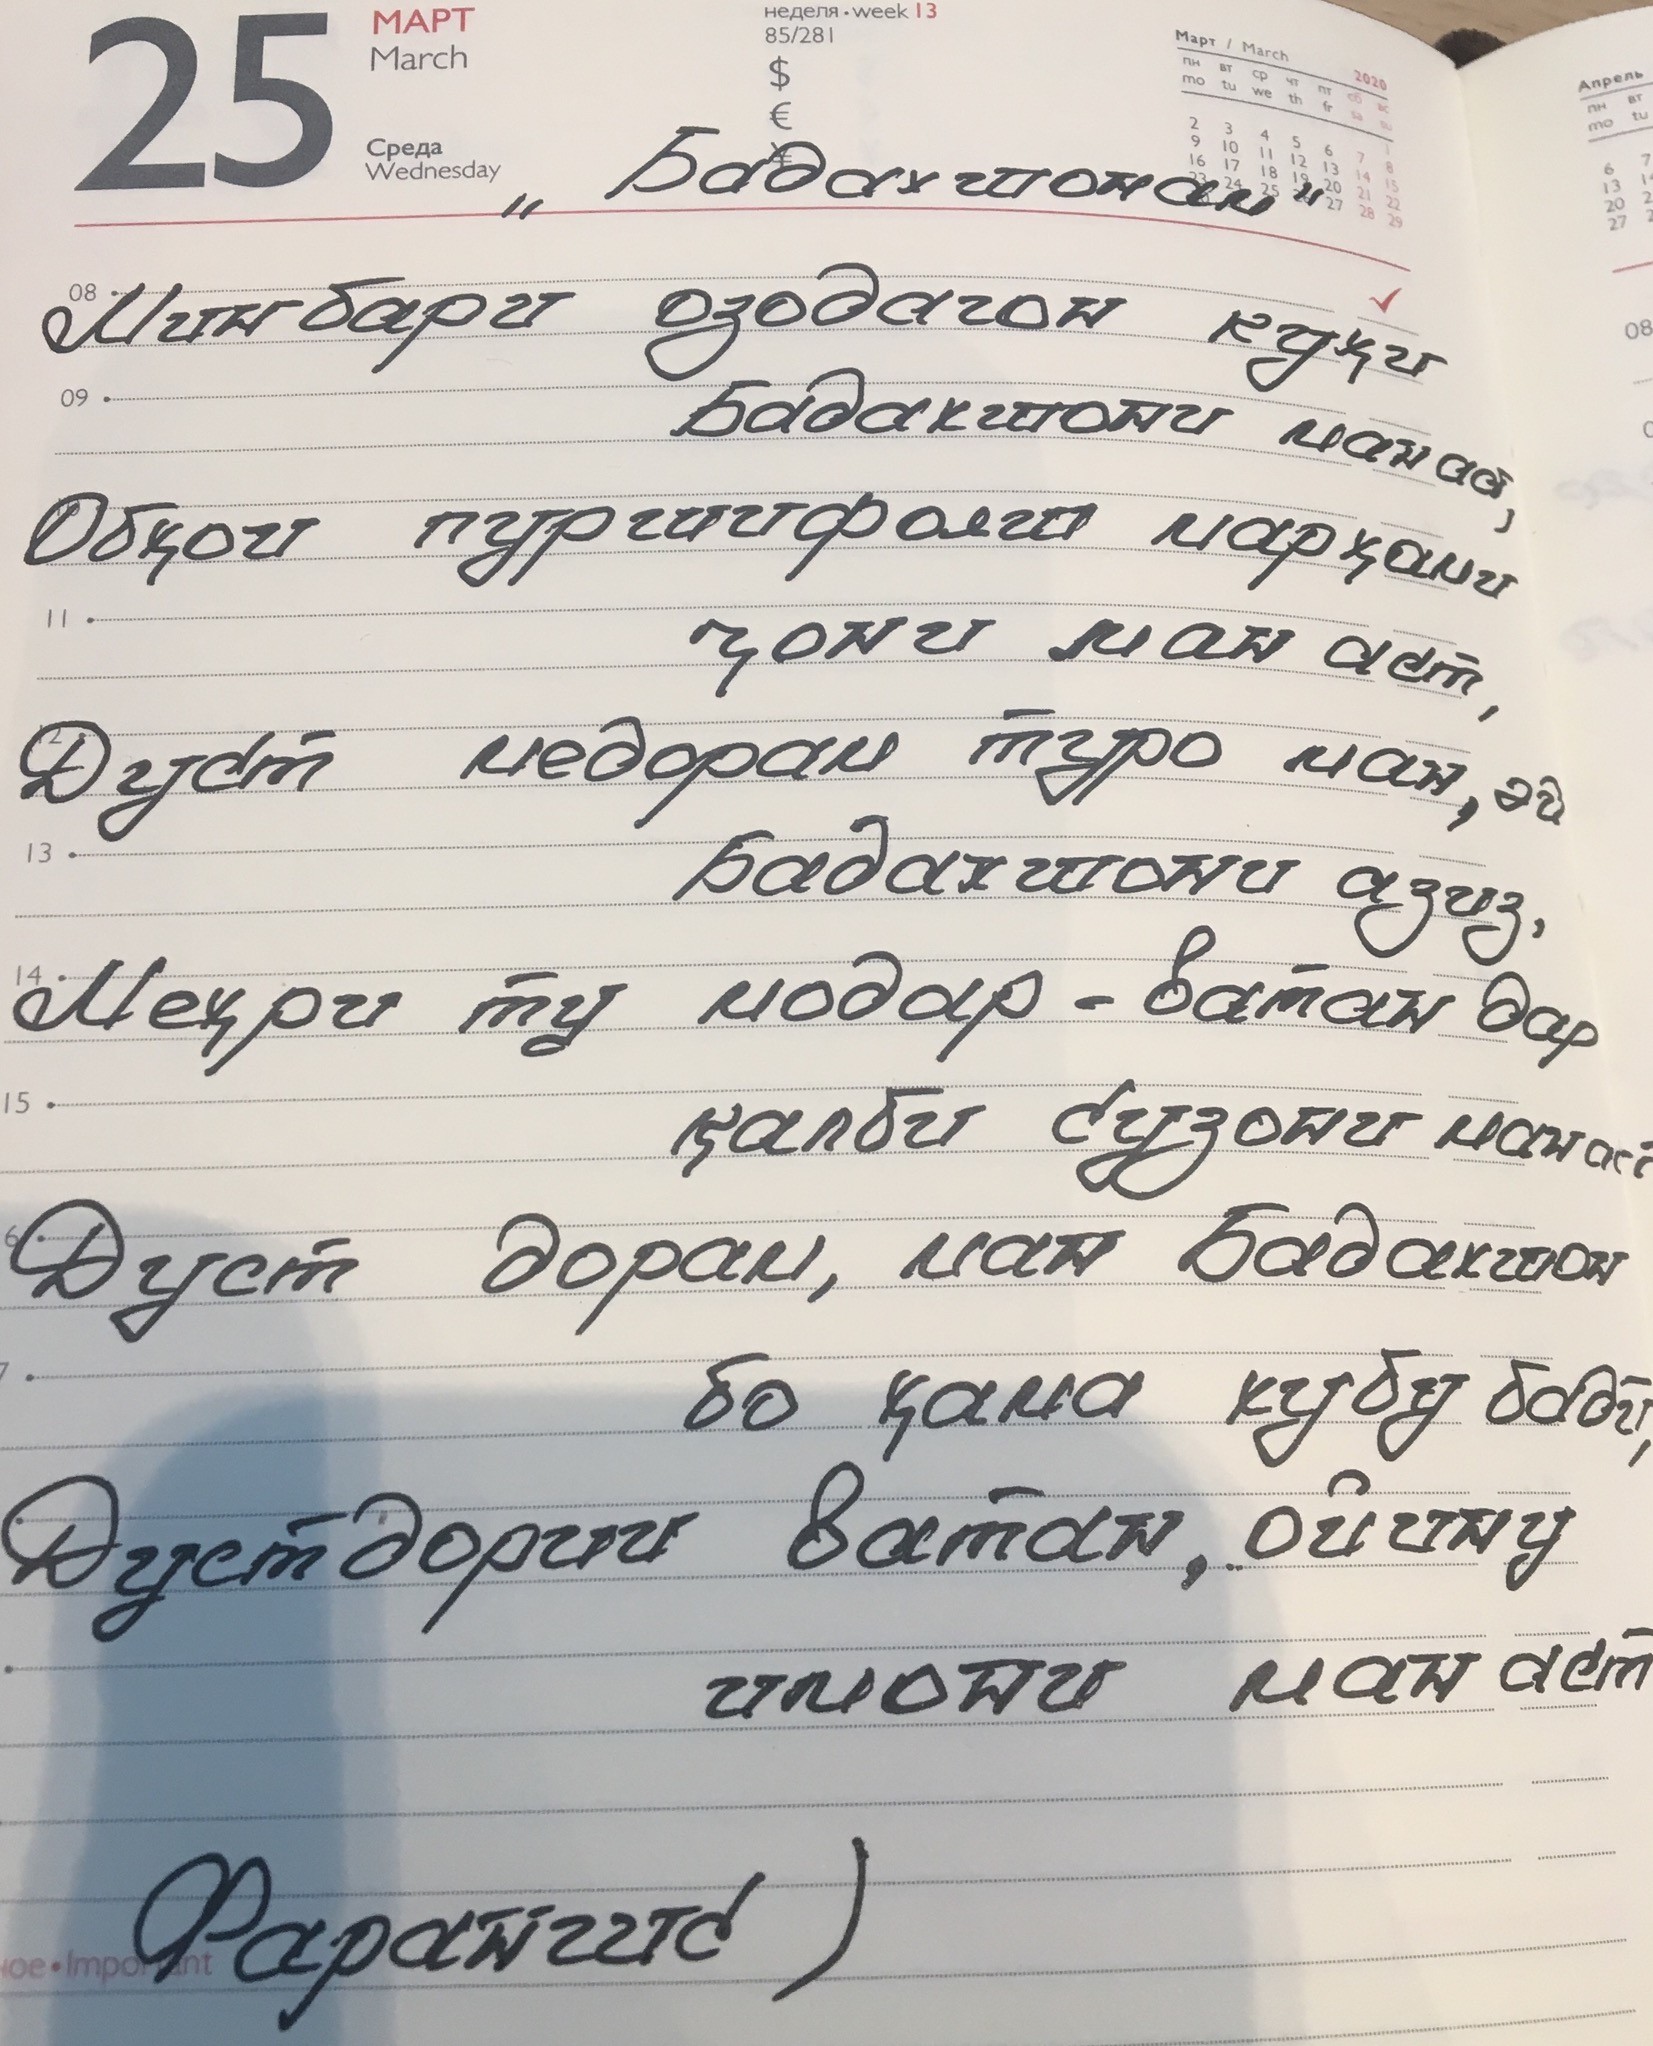 25 МАРТ
March
Среда
Wednesday
неделя · week 13
85/281
$
€
¥
Март / March 2020
пн вт ср чт пт сб вс
mo tu we th fr sa su
1
2 3 4 5 6 7 8
9 10 11 12 13 14 15
16 17 18 19 20 21 22
23 24 25 26 27 28 29
Апрель
пн вт
mo tu
6 7
13 14
20
27
„Бадахшонам"
08 Минбари озодагон куҳи
09 Бадахшони манаст,
Обҳои пургшифояш марҳами
11 ҷони ман аст,
12 Дуст медорам туро ман, эй
13 Бадахшони азиз,
14 Меҳри ту модар-ватан дар
15 қалби сузони ман аст
Дуст дорам, ман Бадахшон
бо ҳама хубу бадӣ,
Дустдории ватан, ойину
имони ман аст
Фарангис)
ное • Important
08